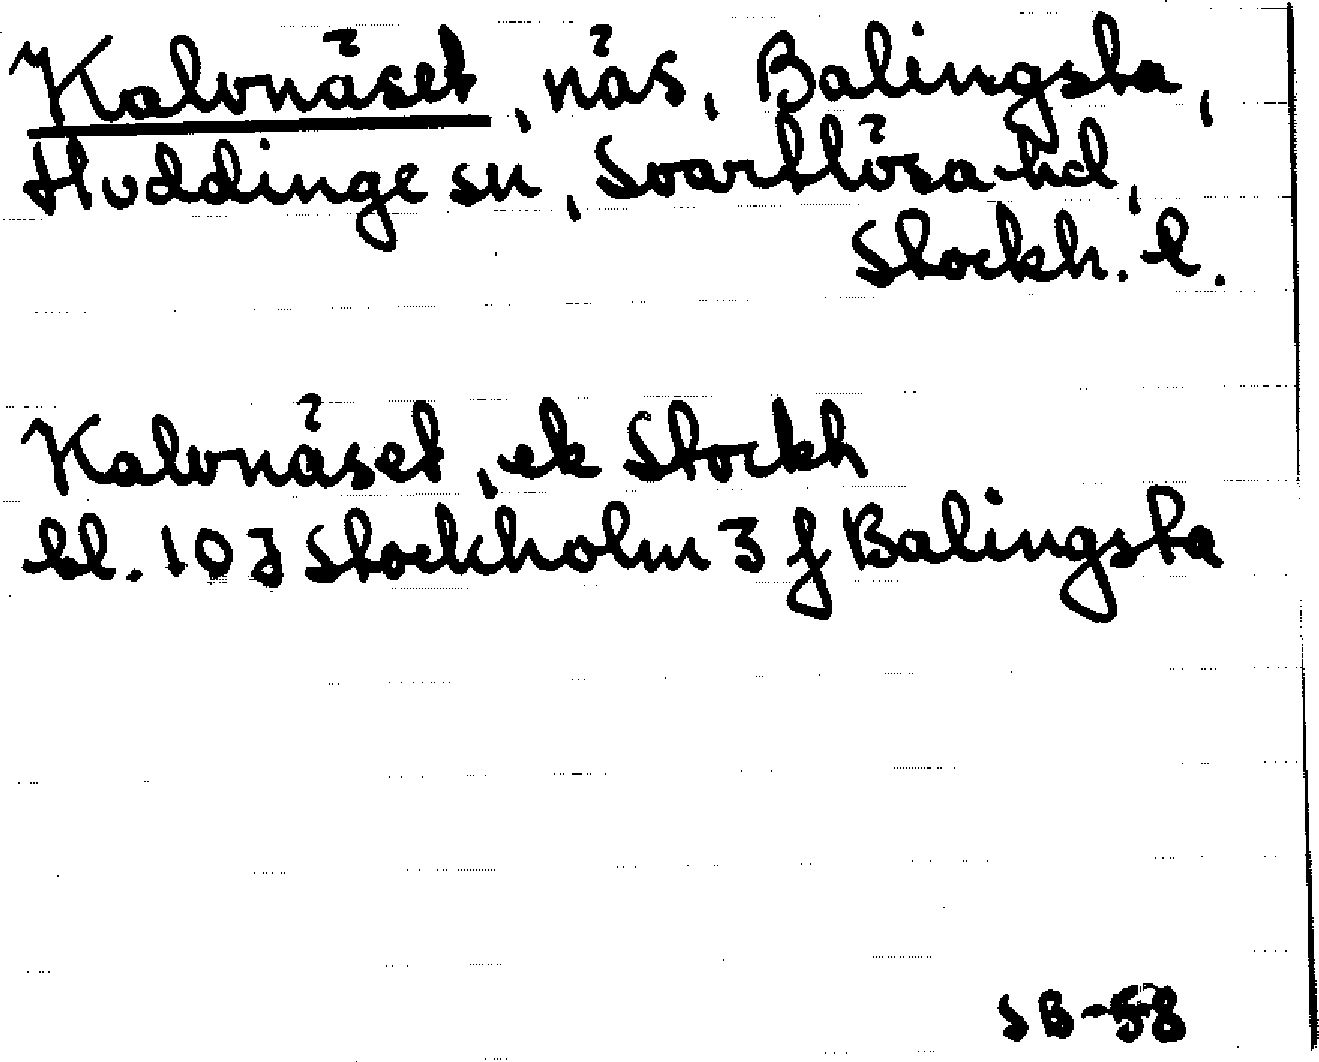 Kalvnäset, näs, Balingsta,
Huddinge sn, Svartlösa hd,
Stockh. l.
Kalvnäset, ek Stockh
bl. 10 J Stockholm 3 f Balingsta
SB-58